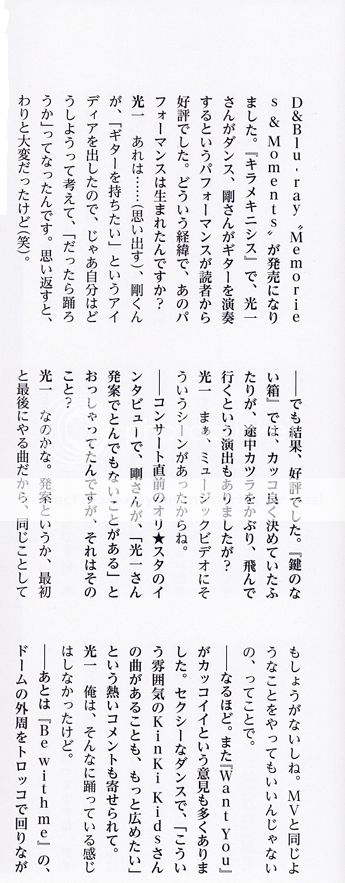 D&Blu-ray〝Memorie
s & Moments〟が発売になり
ました。『キラメキニシス』で、光一
さんがダンス、剛さんがギターを演奏
するというパフォーマンスが読者から
好評でした。どういう経緯で、あのパ
フォーマンスは生まれたんですか？
光一　あれは……（思い出す）、剛くん
が、「ギターを持ちたい」というアイ
ディアを出したので、じゃあ自分はど
うしようって考えて、「だったら踊ろ
うか」ってなったんです。思い返すと、
わりと大変だったけど（笑）。
――でも結果、好評でした。『鍵のな
い箱』では、カッコ良く決めていたふ
たりが、途中カツラをかぶり、飛んで
行くという演出もありましたが？
光一　まぁ、ミュージックビデオにそ
ういうシーンがあったからね。
――コンサート直前のオリ★スタのイ
ンタビューで、剛さんが、「光一さん
発案でとんでもないことがある」と
おっしゃってたんですが、それはその
こと？
光一　なのかな。発案というか、最初
と最後にやる曲だから、同じことして
もしょうがないしね。MVと同じよ
うなことをやってもいいんじゃない
の、ってことで。
――なるほど。また『Want You』
がカッコイイという意見も多くありま
した。セクシーなダンスで、「こうい
う雰囲気のKinKi Kidsさん
の曲があることも、もっと広めたい」
という熱いコメントも寄せられて。
光一　俺は、そんなに踊っている感じ
はしなかったけど。
――あとは『Be with me』の、
ドームの外周をトロッコで回りなが